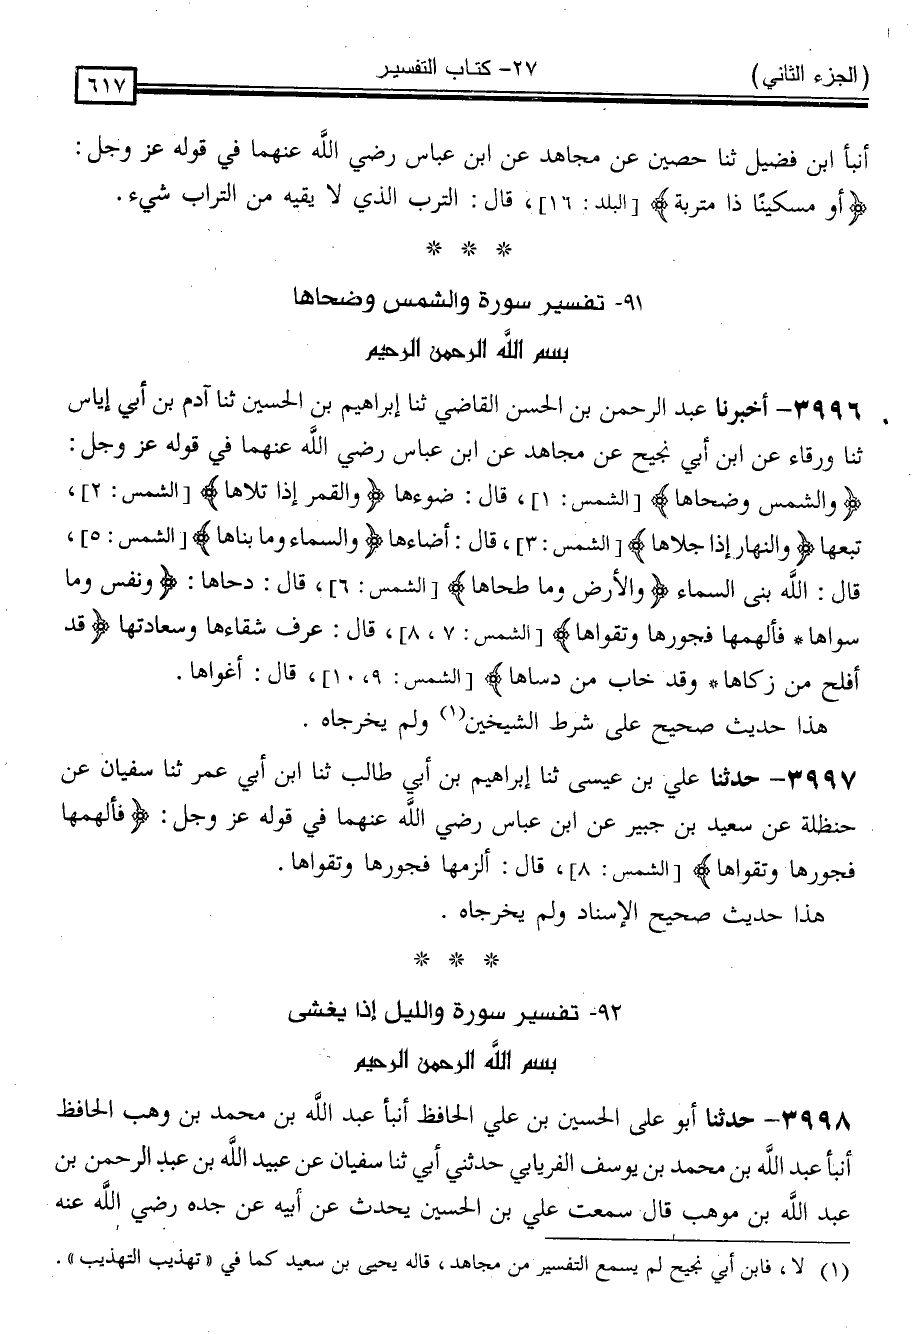 (الجزء الثاني)
٢٧- كتاب التفسير
٦١٧
أنبأ ابن فضيل ثنا حصين عن مجاهد عن ابن عباس رضي اللَّه عنهما في قوله عز وجل :
﴿أو مسكينًا ذا متربة﴾ [البلد : ١٦]، قال : الترب الذي لا يقيه من التراب شيء.
* * *
٩١- تفسير سورة والشمس وضحاها
بسم اللَّه الرحمن الرحيم
٣٩٩٦- أخبرنا عبد الرحمن بن الحسن القاضي ثنا إبراهيم بن الحسين ثنا آدم بن أبي إياس
ثنا ورقاء عن ابن أبي نجيح عن مجاهد عن ابن عباس رضي اللَّه عنهما في قوله عز وجل :
﴿والشمس وضحاها﴾ [الشمس : ١]، قال : ضوءها ﴿والقمر إذا تلاها﴾ [الشمس : ٢]،
تبعها ﴿والنهار إذا جلاها﴾ [الشمس : ٣]، قال : أضاءها ﴿والسماء وما بناها﴾ [الشمس : ٥]،
قال : اللَّه بنى السماء ﴿والأرض وما طحاها﴾ [الشمس : ٦]، قال : دحاها : ﴿ونفس وما
سواها * فألهمها فجورها وتقواها﴾ [الشمس : ٧ ، ٨]، قال : عرف شقاءها وسعادتها ﴿قد
أفلح من زكاها * وقد خاب من دساها﴾ [الشمس : ٩، ١٠]، قال : أغواها .
هذا حديث صحيح على شرط الشيخين(١) ولم يخرجاه .
٣٩٩٧- حدثنا علي بن عيسى ثنا إبراهيم بن أبي طالب ثنا ابن أبي عمر ثنا سفيان عن
حنظلة عن سعيد بن جبير عن ابن عباس رضي اللَّه عنهما في قوله عز وجل : ﴿فألهمها
فجورها وتقواها﴾ [الشمس : ٨]، قال : ألزمها فجورها وتقواها .
هذا حديث صحيح الإسناد ولم يخرجاه .
* * *
٩٢- تفسير سورة والليل إذا يغشى
بسم اللَّه الرحمن الرحيم
٣٩٩٨- حدثنا أبو على الحسين بن علي الحافظ أنبأ عبد اللَّه بن محمد بن وهب الحافظ
أنبأ عبد اللَّه بن محمد بن يوسف الفريابي حدثني أبي ثنا سفيان عن عبيد اللَّه بن عبد الرحمن بن
عبد اللَّه بن موهب قال سمعت علي بن الحسين يحدث عن أبيه عن جده رضي اللَّه عنه
(١) لا ، فابن أبي نجيح لم يسمع التفسير من مجاهد ، قاله يحيى بن سعيد كما في «تهذيب التهذيب» .